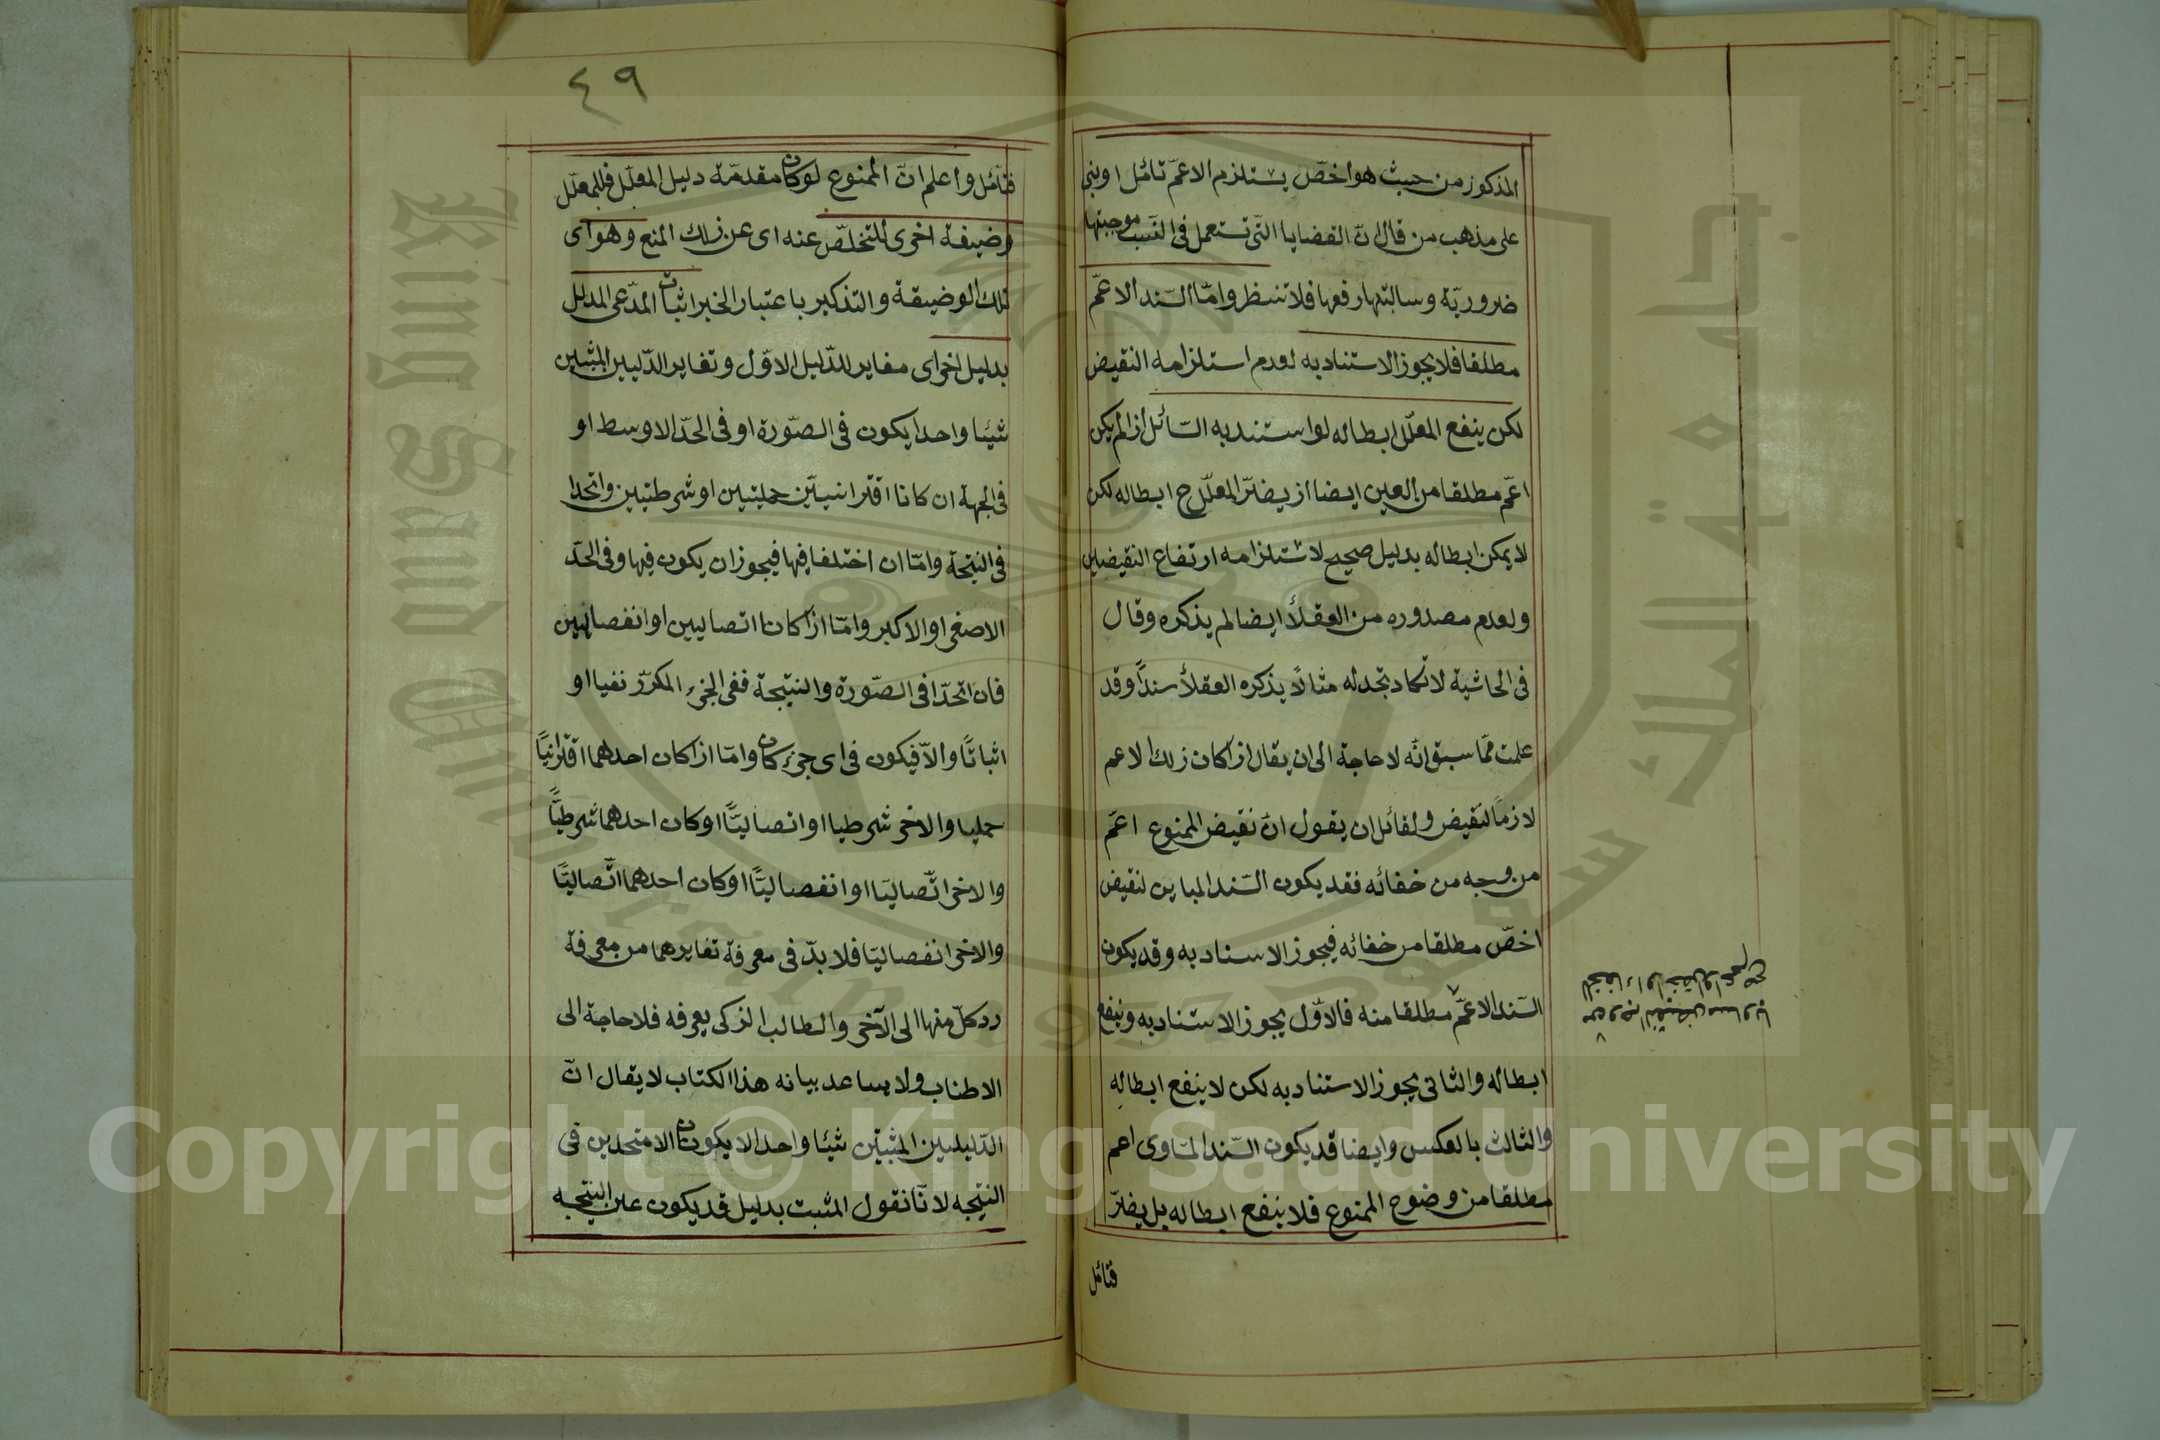 المذكور من حيث هو اخصّ يستلزم الاعمّ تأمّل او بنى
على مذهب من قال انّ القضايا التّى تستعمل فى النّسب موجبتها
ضروريّة وسالبتها رفعها فلا تنتظر وامّا السّند الاعمّ
مطلقا فلا يجوز الاستناد به لعدم استلزامه النقيض
لكن ينفع المعلّل ابطاله لو استند به السّائل اذا لم يكن
اعمّ مطلقا من العين ايضا اذ يضرّ المعلّل ح ابطاله لكن
لا يمكن ابطاله بدليل صحيح لاستلزامه ارتفاع النقيضين
ولعدم مصدوره من العقلأ ايضا لم يذكره وقال
فى الحاشية لا تكاد تجد له مثالاً يذكره العقلأ سندًا وقد
علمت ممّا سبق انّه لا حاجة الى ان يقال اذا كان ذلك الاعم
لازمًا لنقيض ولقائل ان يقول انّ نقيض الممنوع اعمّ
من وجه من خفائه فقد يكون السّند المباين لنقيض
اخصّ مطلقا من خفائه فيجوز الاسناد به وقد يكون
السّند الاعمّ مطلقا منه فالاوّل يجوز الاستناد به وينفع
ابطاله والثانى يجوز الاستناد به لكن لا ينفع ابطاله
والثالث بالعكس وايضا قد يكون السّند المساوى اعم
مطلقا من وضوح الممنوع فلا ينفع ابطاله بل يضرّ
فتأمّل
من وجه النقيض مساويا
٤٩
فتأمّل واعلم انّ الممنوع لو كان مقدمّة دليل المعلّل فللمعلّل
وضيفة اخرى للتخلّص عنه اى عن ذلك المنع وهو اى
تلك الوضيفة والتذكير باعتبار الخبر اثبات المدّعى المدلل
بدليل اخر اى مغاير للدّليل الاوّل وتغاير الدّليين المثبتين
شيئا واحدا يكون فى الصّورة او فى الحدّ الاوسط او
فى الجهة ان كانا اقترانييّن حمليتين او شرطيّين واتحدا
فى النتيجة وامّا ان اختلفا فيها فيجوز ان يكون فيها وفى الحدّ
الاصغر او الاكبر وامّا اذا كانا اتصاليين او انفصاليين
فان اتحدّا فى الصّورة والنتيجة ففى الجزء المكرّر نفيا او
اثباتًا والاّ فيكون فى اى جزء كان وامّا اذا كان احدهما اقترانيًا
حمليا والاخر شرطيا او اتصاليّا او كان احدهما شرطيًّا
والاخر اتّصاليّا او انفصاليّا او كان احدهما اتّصاليًّا
والاخر انفصاليّا فلا بدّ فى معرفة تغايرهما من معرفة
رد كلّ منها الى الآخر والطالب الذكى يعرفه فلا حاجة الى
الاطناب ولا يساعد بيانه هذا الكتاب لا يقال انّ
الدّليلين المثبتّين شيئا واحدا لا يكونان الا متحدين فى
النتيجه لانّا نقول المثبت بدليل قد يكون عين النتيجه
Copyright © King Saud University
King Saud University
1957
جامعة الملك سعود